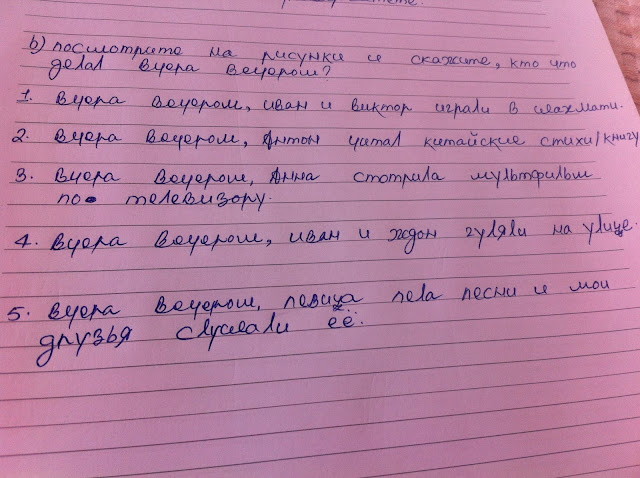 b) посмотрите на рисунки и скажите, кто что
делал вчера вечером?
1. Вчера вечером, иван и виктор играли в шахмати.
2. Вчера вечером, Антон читал китайские стихи/книгу
3. Вчера вечером, Анна стотрила мультфильм
по телевизору.
4. Вчера вечером, иван и ждон гуляли на улице.
5. Вчера вечером, певица пела песни и мои
друзья слушали её.